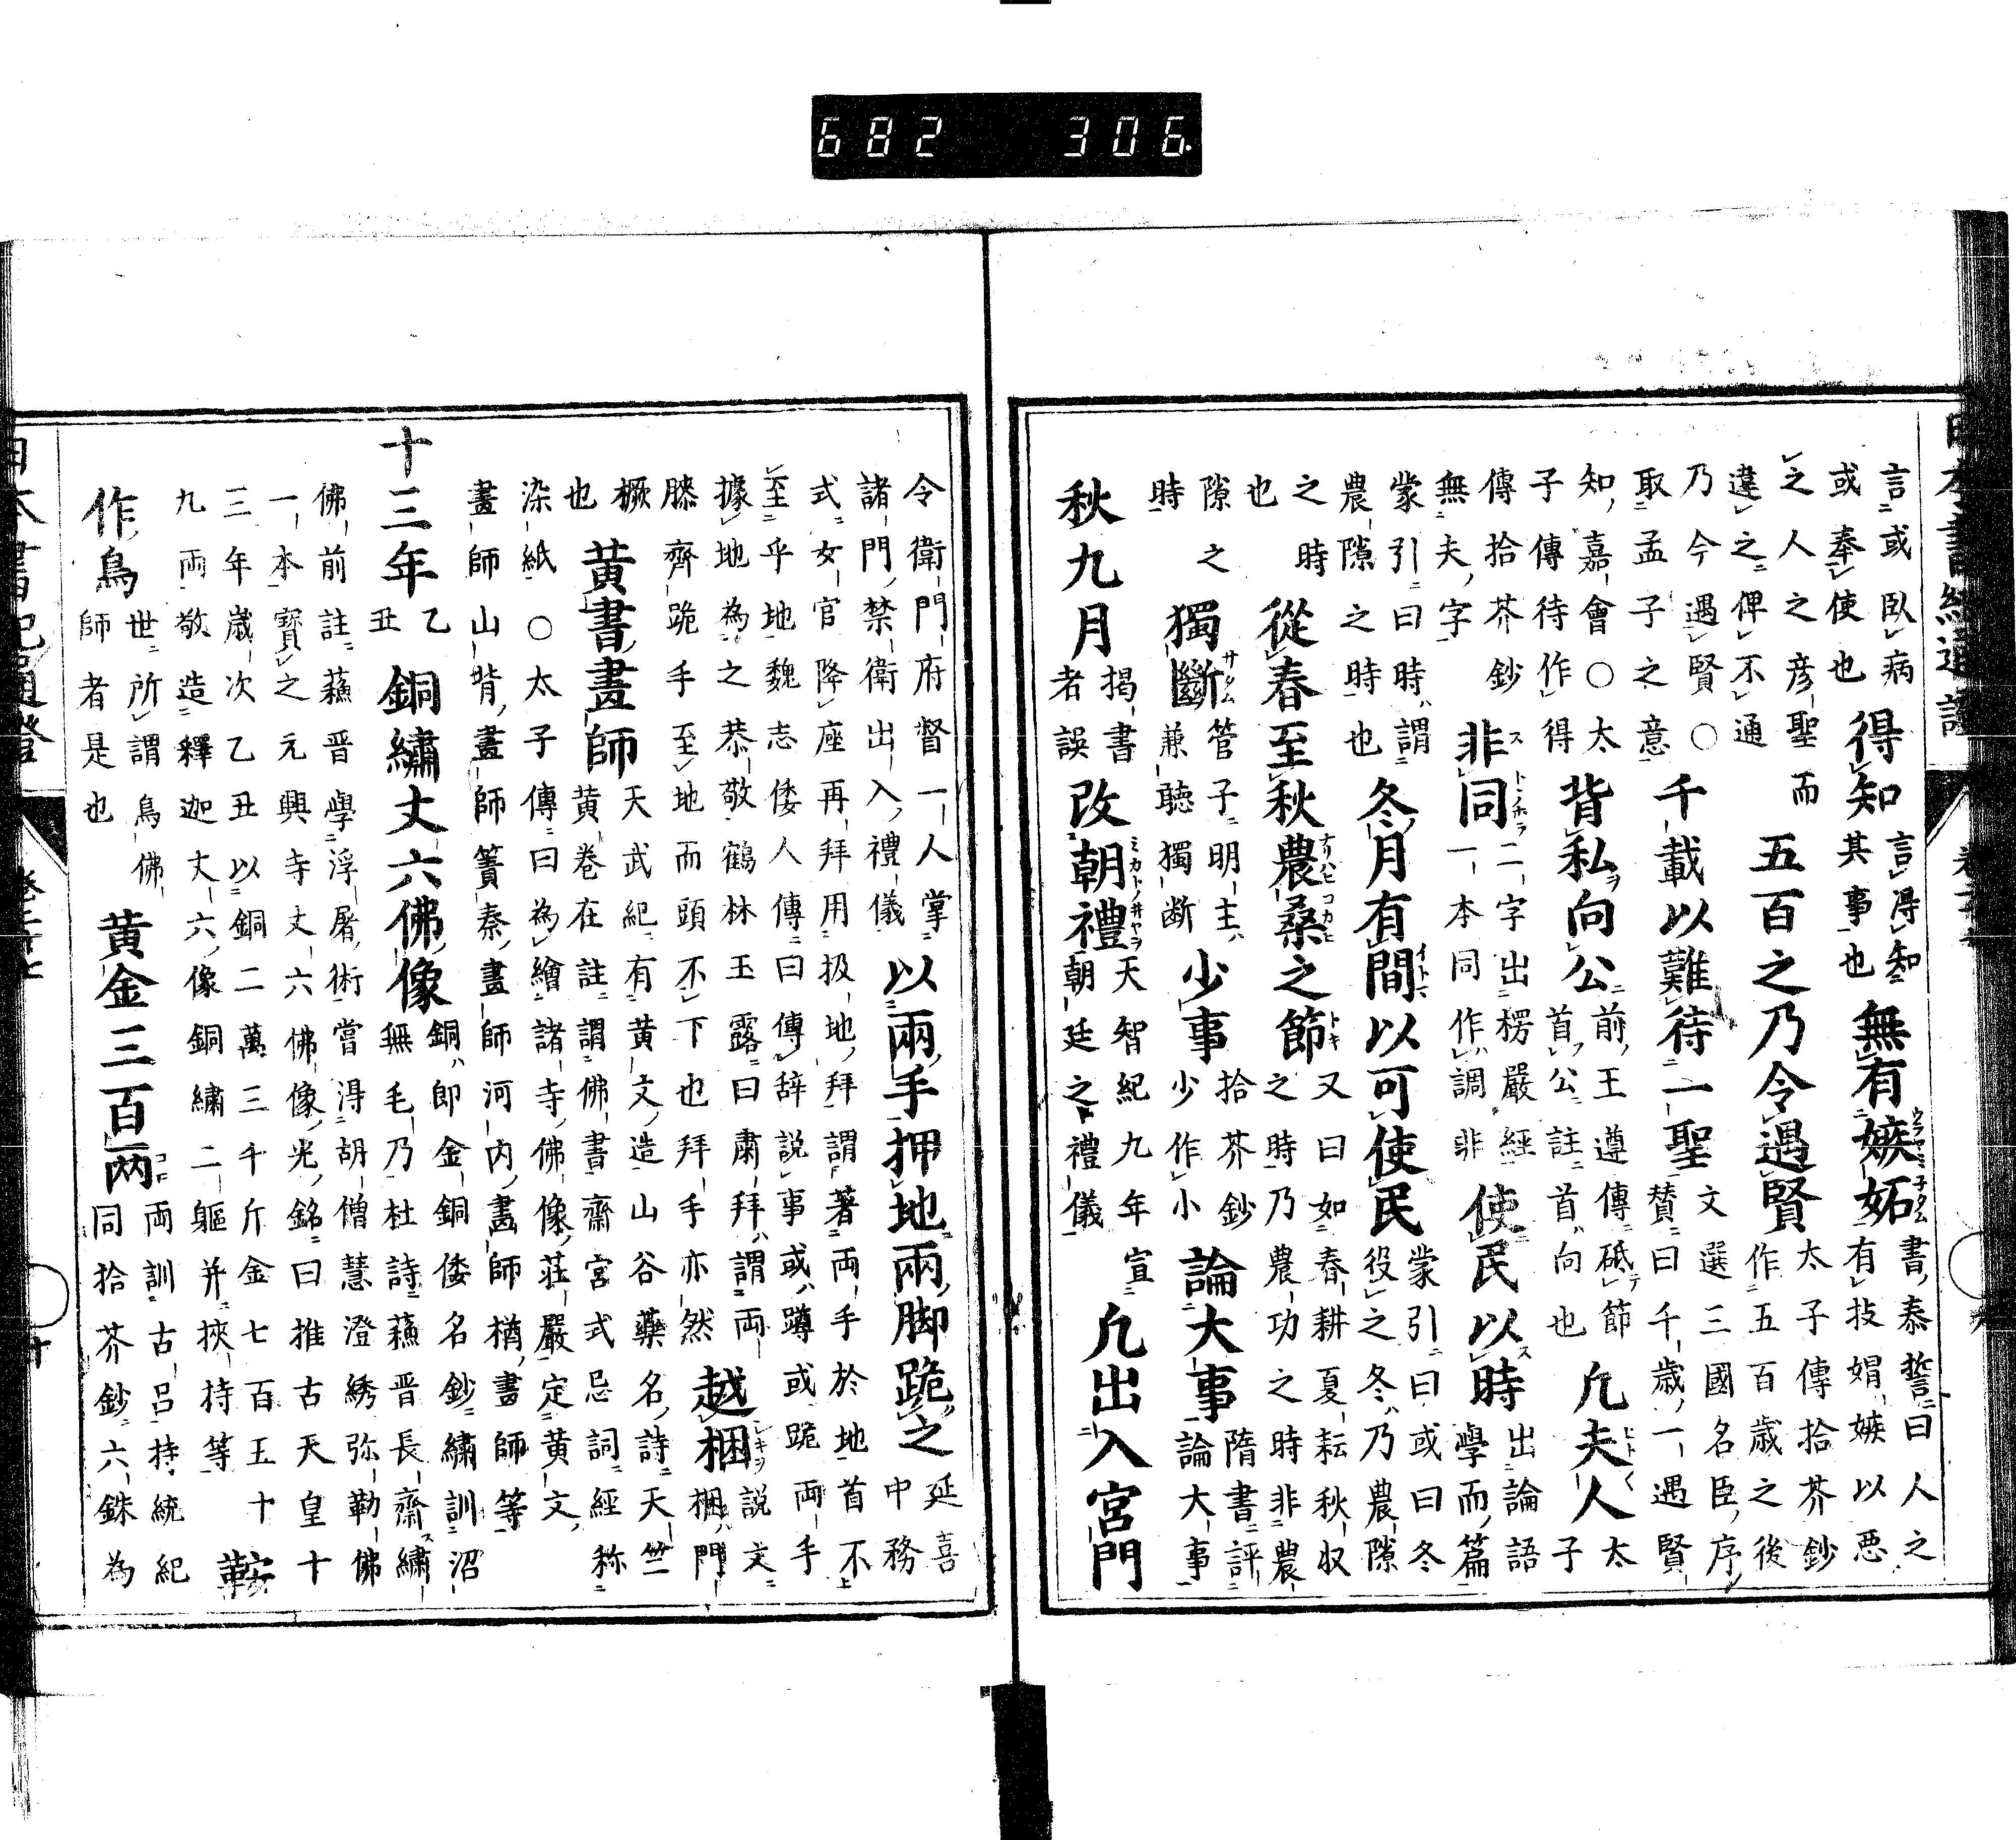 言或臥病或奉使也得知言得知其事也無有嫉妬書泰誓曰人之有技娼嫉以悪
之人之彦聖而違之俾不通五百之乃令遇賢太子傳拾芥鈔作五百歳之後
乃今遇賢○取孟子之意千載以難待一聖文選三國名臣序賛曰千歳一遇賢
知嘉會○太子傳待作得背私向公前王遵傳砥節首公註首向也凢夫人太子
傳拾芥鈔無夫字非同二字出楞嚴經一本同作調非使民以時出論語學而篇
蒙引曰時謂農隙之時也冬月有間以可使民蒙引曰或曰冬役之冬乃農隙
之時也從春至秋農桑之節又曰如春耕夏耘秋収之時乃農功之時非農
隙之時獨斷管子明主兼聽獨断少事拾芥鈔少作小論大事隋書評論大事
秋九月掲書者誤改朝禮天智紀九年宣朝廷之禮儀凢出入宮門
令衛門府督一人掌諸門禁衛出入禮儀以兩手押地兩脚跪之延喜中務
式女官降座再拜用扱地拜謂著両手於地首不至乎地魏志倭人傳曰傳辞説事或蹲或跪両手
據地為之恭敬鶴林玉露曰粛拜謂両膝齊跪手至地而頭不下也拜手亦然越梱説文梱門
橛也黄書畫師天武紀有黄文造山谷藥名詩天竺黄巻在註謂佛書齋宮式忌詞經称
染紙○太子傳曰為繪諸寺佛像荘嚴定黄文畫師山背畫師簀秦畫師河内畫師楢畫師等
十三年乙丑銅繡丈六佛像銅即金銅倭名鈔繡訓沼無毛乃杜詩蘓晋長齋繡
佛前註蘓晋學浮屠術嘗得胡僧慧澄綉弥勒佛一本寳之元興寺丈六佛像光銘曰推古天皇十
三年歳次乙丑以銅二萬三千斤金七百五十九両敬造釋迦丈六像銅繡二軀并挾持等鞍
作鳥世所謂鳥佛師者是也黄金三百兩両訓古呂持統紀同拾芥鈔六銖為
682 306